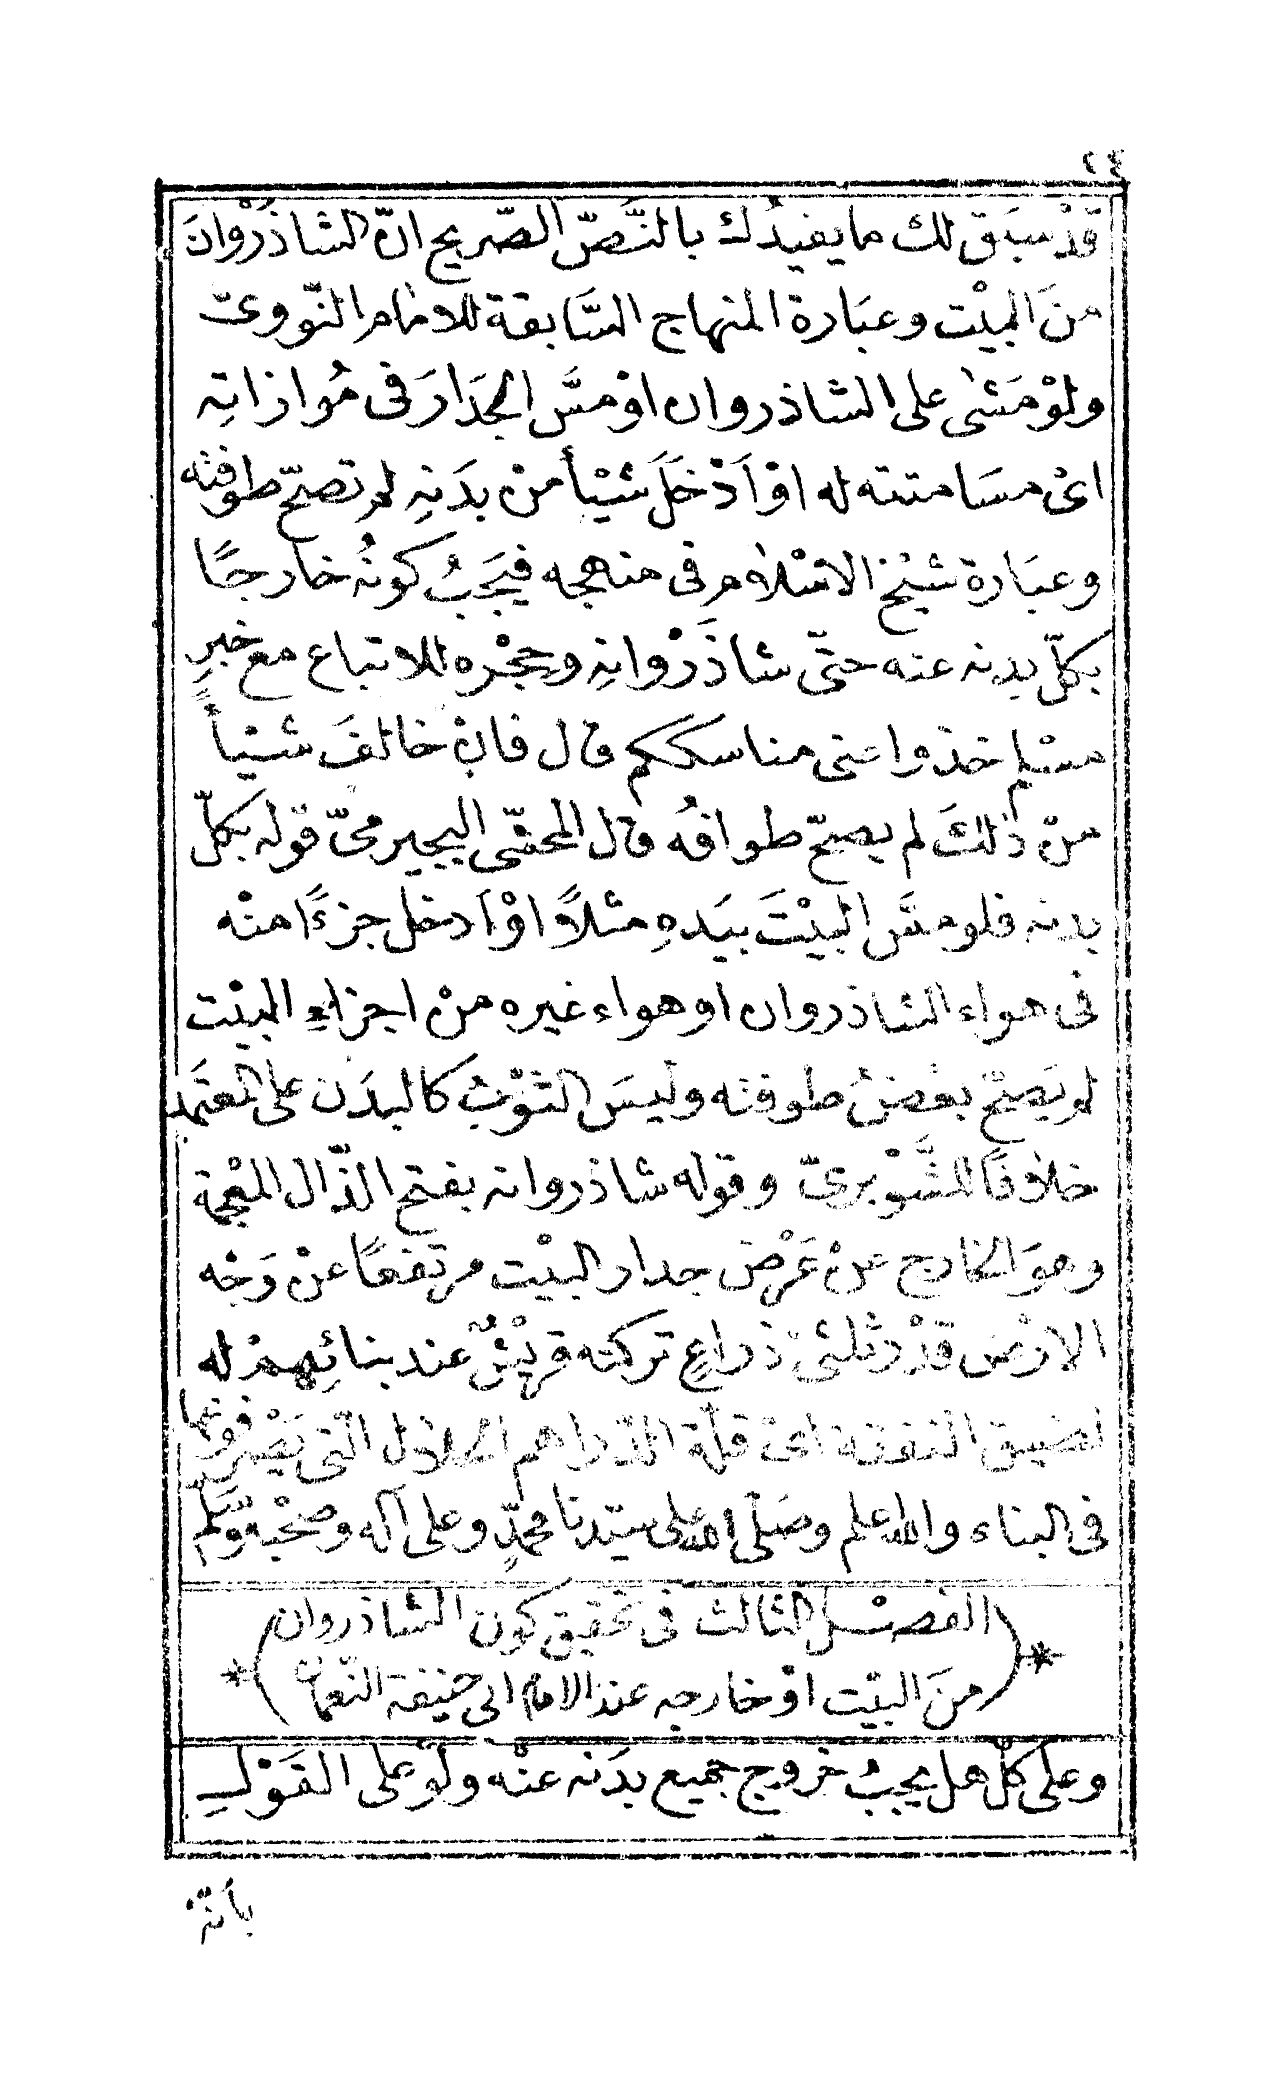 ٢٤
قَدْ سبَق لك ما يفيدُك بالنَّصّ الصّريح انّ الشاذَرْوانَ
منَ البيْت وعبَارة المنهاج السَّابقة للامام النّووىّ
ولوْ مَشٰى على الشاذروان اوْ مسَّ الجدَارَ فى مُوازاتِه
اىْ مسَامتته له اوْ اَدْخَلَ شيْأ منْ بدَنِه لم تصحّ طوفته
وعبَارة شيْخ الاسْلام فى منهجه فيَجَبُ كونُه خارجًا
بكلّ بدنه عنه حتّى شاذَرْوانِه وحِجْره للاتباع مع خبرِ
مسْلم خذوا عنى مناسككم قال فانْ خالفَ شيْأً
منْ ذٰلكَ لم يصحّ طوافُه قال المحشّى البجيرمىّ قوله بكلّ
بدنه فلو مسَّ البيْتَ بيَدهِ مثلاً اوْ اَدخل جزءًا منْه
فى هواء الشاذروان او هواء غيره منْ اجزاءِ البيْت
لم يَصحّ بعْضُ طوفته وليسَ الثوْبُ كالبدَن على المعتَمد
خلافًا للشَّوْبرىّ وقوله شاذروانه بفتح الذّال المعْجمة
وهوَ الخارج عنْ عَرْض جدار البيْت مرتفعًا عنْ وَجْه
الارْض قدْر ثلثىْ ذراعٍ تركته قريْشٌ عند بنائِهمْ له
لضيق النفقة اىْ قلّة الدّراهم الحلال الّتى يَصْرفونها
فى البناء والله اعلم وصَلّى الله على سيّدنا محمّدٍ وعلى آله وصحْبه وسَلّم
(الفصْل الثالث فى تحقيق كون الشاذروان
منَ البيْت اوْ خارجه عند الامام ابى حنيفة النّعمان)
وعلى كلّ هل يجبُ خروج جميع بدَنه عنْه ولوْ على القَوْل
بأنّه